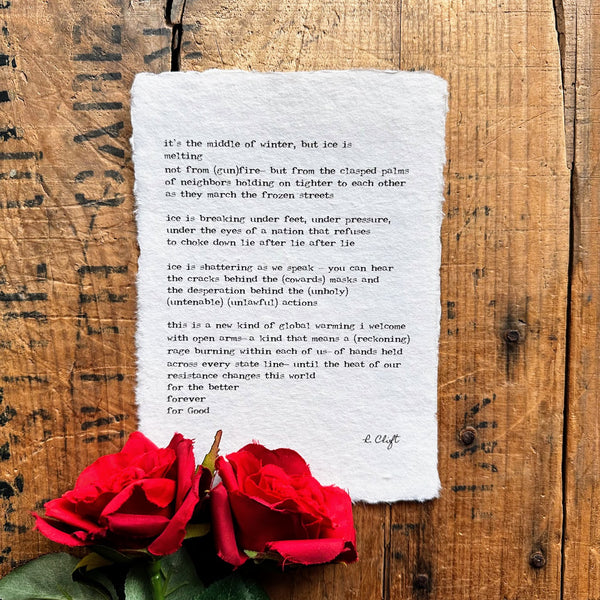 it's the middle of winter, but ice is
melting
not from (gun)fire— but from the clasped palms
of neighbors holding on tighter to each other
as they march the frozen streets
ice is breaking under feet, under pressure,
under the eyes of a nation that refuses
to choke down lie after lie after lie
ice is shattering as we speak – you can hear
the cracks behind the (cowards) masks and
the desperation behind the (unholy)
(untenable) (unlawful) actions
this is a new kind of global warming i welcome
with open arms—a kind that means a (reckoning)
rage burning within each of us—of hands held
across every state line— until the heat of our
resistance changes this world
for the better
forever
for Good
R. Clift